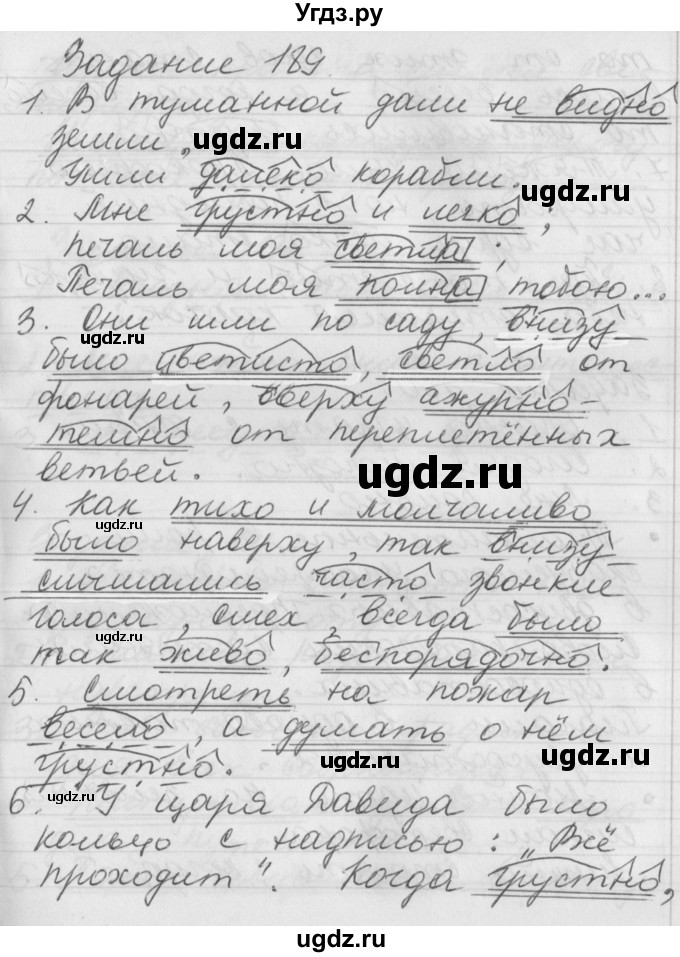 Угдз.ру
Задание 189.
1. В туманной дали не видно
земли,
Ушли далеко корабли.
2. Мне грустно и легко;
печаль моя светла;
Печаль моя полна тобою...
3. Они шли по саду, внизу
было цветисто, светло от
фонарей, сверху ажурно-
темно от переплетённых
ветвей.
4. Как тихо и молчаливо
было наверху, так внизу
слышались часто звонкие
голоса, смех, всегда было
так живо, беспорядочно.
5. Смотреть на пожар
весело, а думать о нём
грустно.
6. У царя Давида было
кольцо с надписью: „Всё
проходит“. Когда грустно,
ugdz.ru
ugdz.ru
ugdz.ru
ugdz.ru
ugdz.ru
ugdz.ru
ugdz.ru
ugdz.ru
ugdz.ru
ugdz.ru
ugdz.ru
ugdz.ru